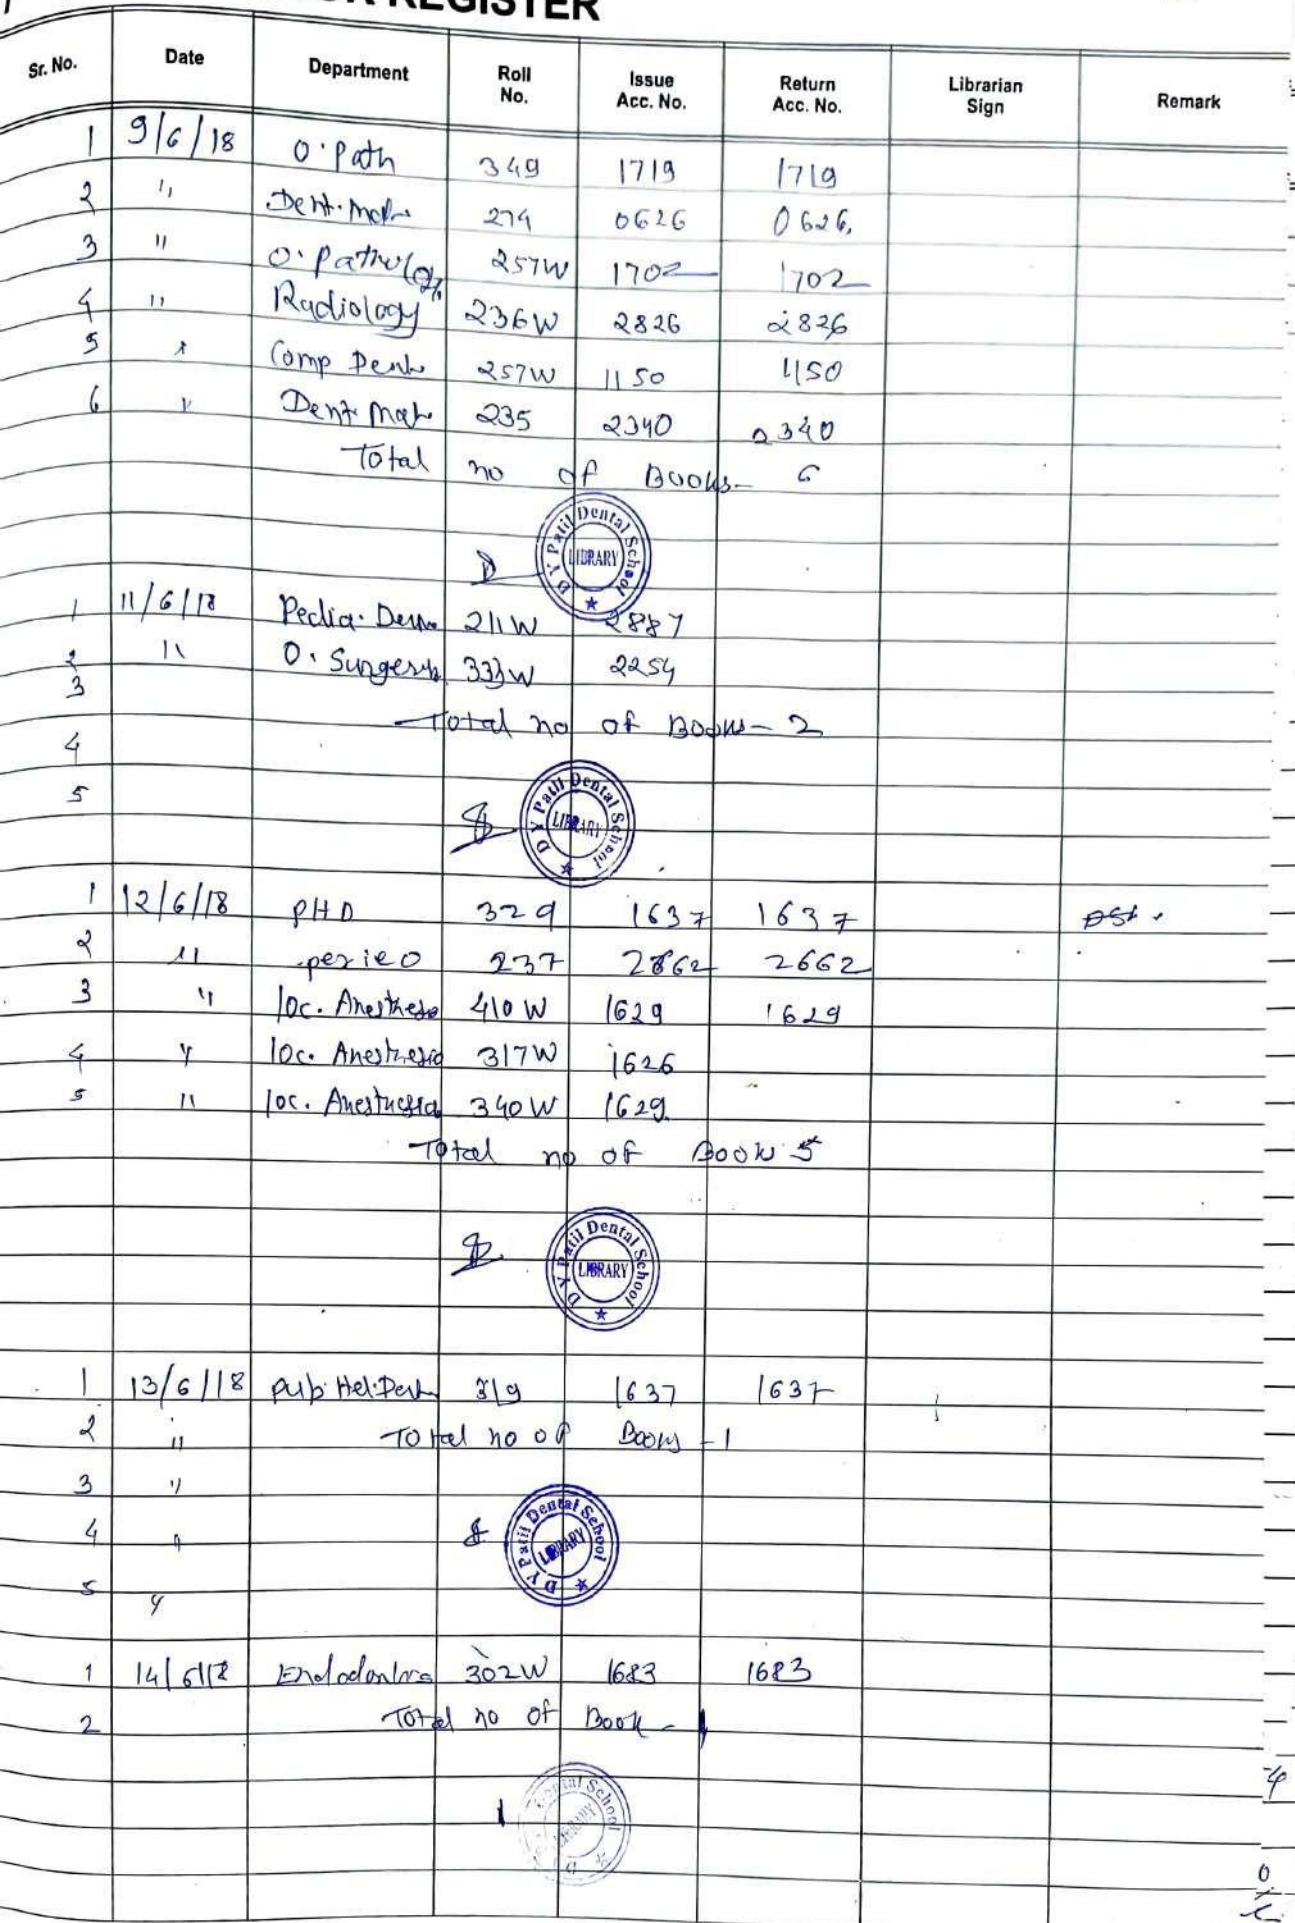 REGISTER
Sr. No. Date Department Roll No. Issue Acc. No. Return Acc. No. Librarian Sign Remark
1 9/6/18 O. Path 349 1719 1719
2 " Dent. Mat 274 0626 0626
3 " O. Pathology 257W 1702 1702
4 " Radiology 236W 2826 2826
5 " Comp Dent 257W 1150 1150
6 " Dent Mat 235 2340 2340
Total no of Books- 6
D Y Patil Dental School LIBRARY
1 11/6/18 Pedia. Den 211W 2887
2 " O. Surgery 333W 2254
3
Total no of Books- 2
4
5
D Y Patil Dental School LIBRARY
1 12/6/18 PHD 329 1637 1637
2 " perieo 237 2862 2662
3 " loc. Anesthesia 410W 1629 1629
4 " loc. Anesthesia 317W 1626
5 " loc. Anesthesia 340W 1629
Total no of Book 5
D Y Patil Dental School LIBRARY
1 13/6/18 pub. Hel. Dent 319 1637 1637
2 " Total no of Books - 1
3 "
4 "
5 "
D Y Patil Dental School LIBRARY
1 14/6/18 Endodontics 302W 1683 1683
2 Total no of Book - 1
Dental School LIBRARY